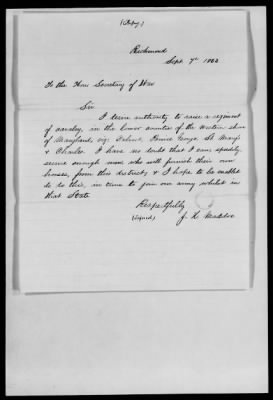 (Copy)
Richmond
Sept. 7th 1862
To the Hon Secretary of War
Sir
I desire authority to raise a regiment
of cavalry, in the lower counties of the western shore
of Maryland, viz: Calvert, Prince George, St. Mary's
& Charles. I have no doubt that I can, speedily,
secure enough men who will furnish their own
horses, from this district, & I hope to be enabled
to do this, in time to join our army whilst in
that State
Respectfully
(signed) J. H. Maddox